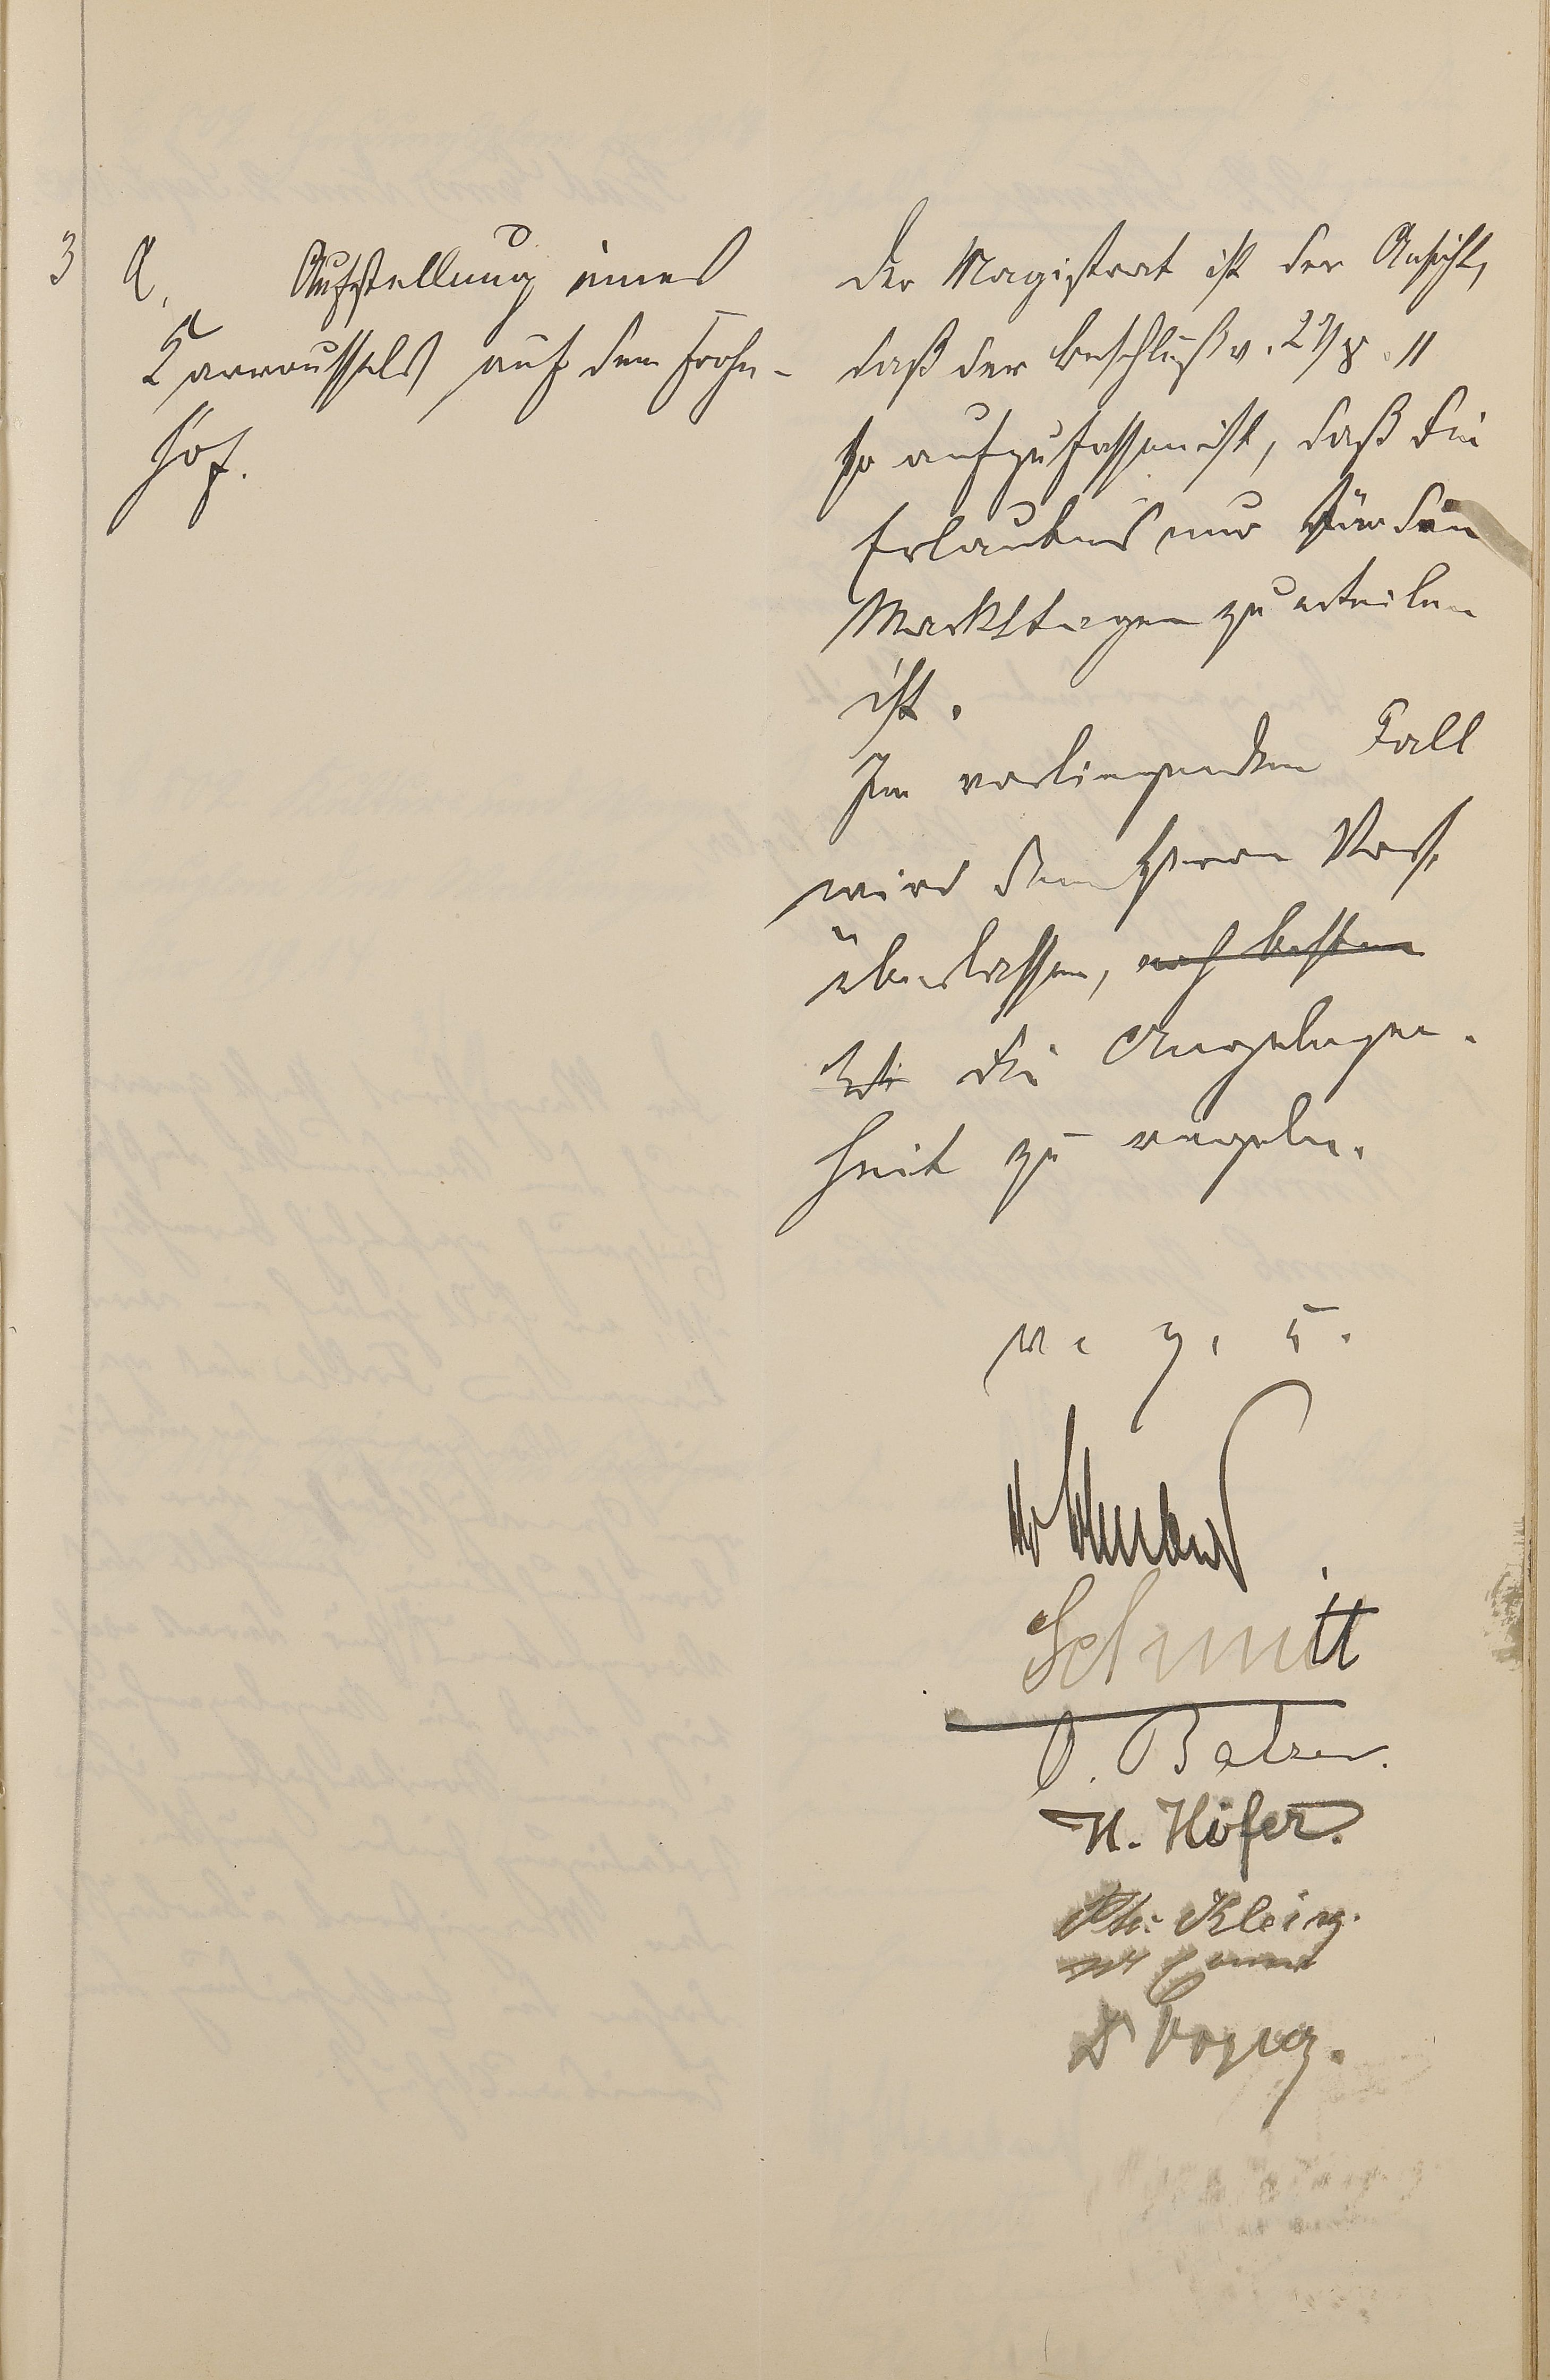 3 A, Aufstellung eines
Karroussels auf dem Frohn-
hof.
Der Magistrat ist der Ansicht,
daß der Beschluß v. 27/X. 11
so aufzufassen ist, daß die
Erlaubnis nur für den
Markttagen zu erteilen
ist.
Im vorliegenden Fall
wird dem Herrn Vors.
überlassen, nach bestem
die Angelegen-
heit zu regeln.
v. g. u.
Schmitt
O. Balzer.
H. Höfer.
Ph. Klein